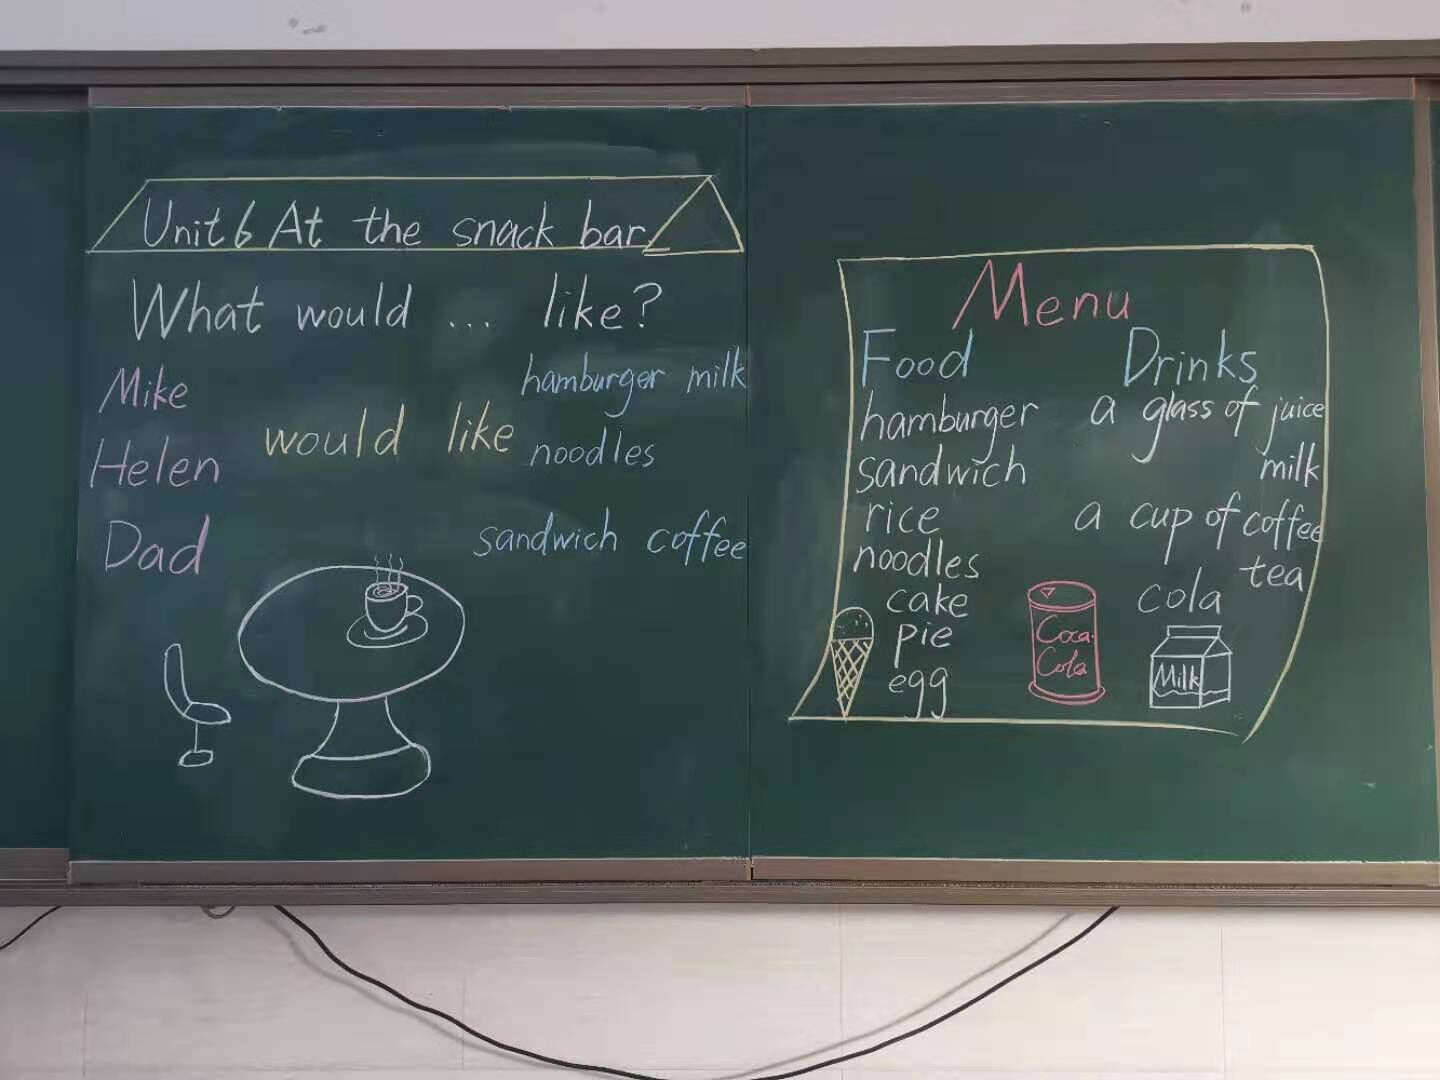 Unit 6 At the snack bar
What would ... like?
Mike
Helen
Dad
would like
hamburger milk
noodles
sandwich coffee
Menu
Food
hamburger
sandwich
rice
noodles
cake
pie
egg
Drinks
a glass of juice
milk
a cup of coffee
tea
cola
Coca-
Cola
Milk